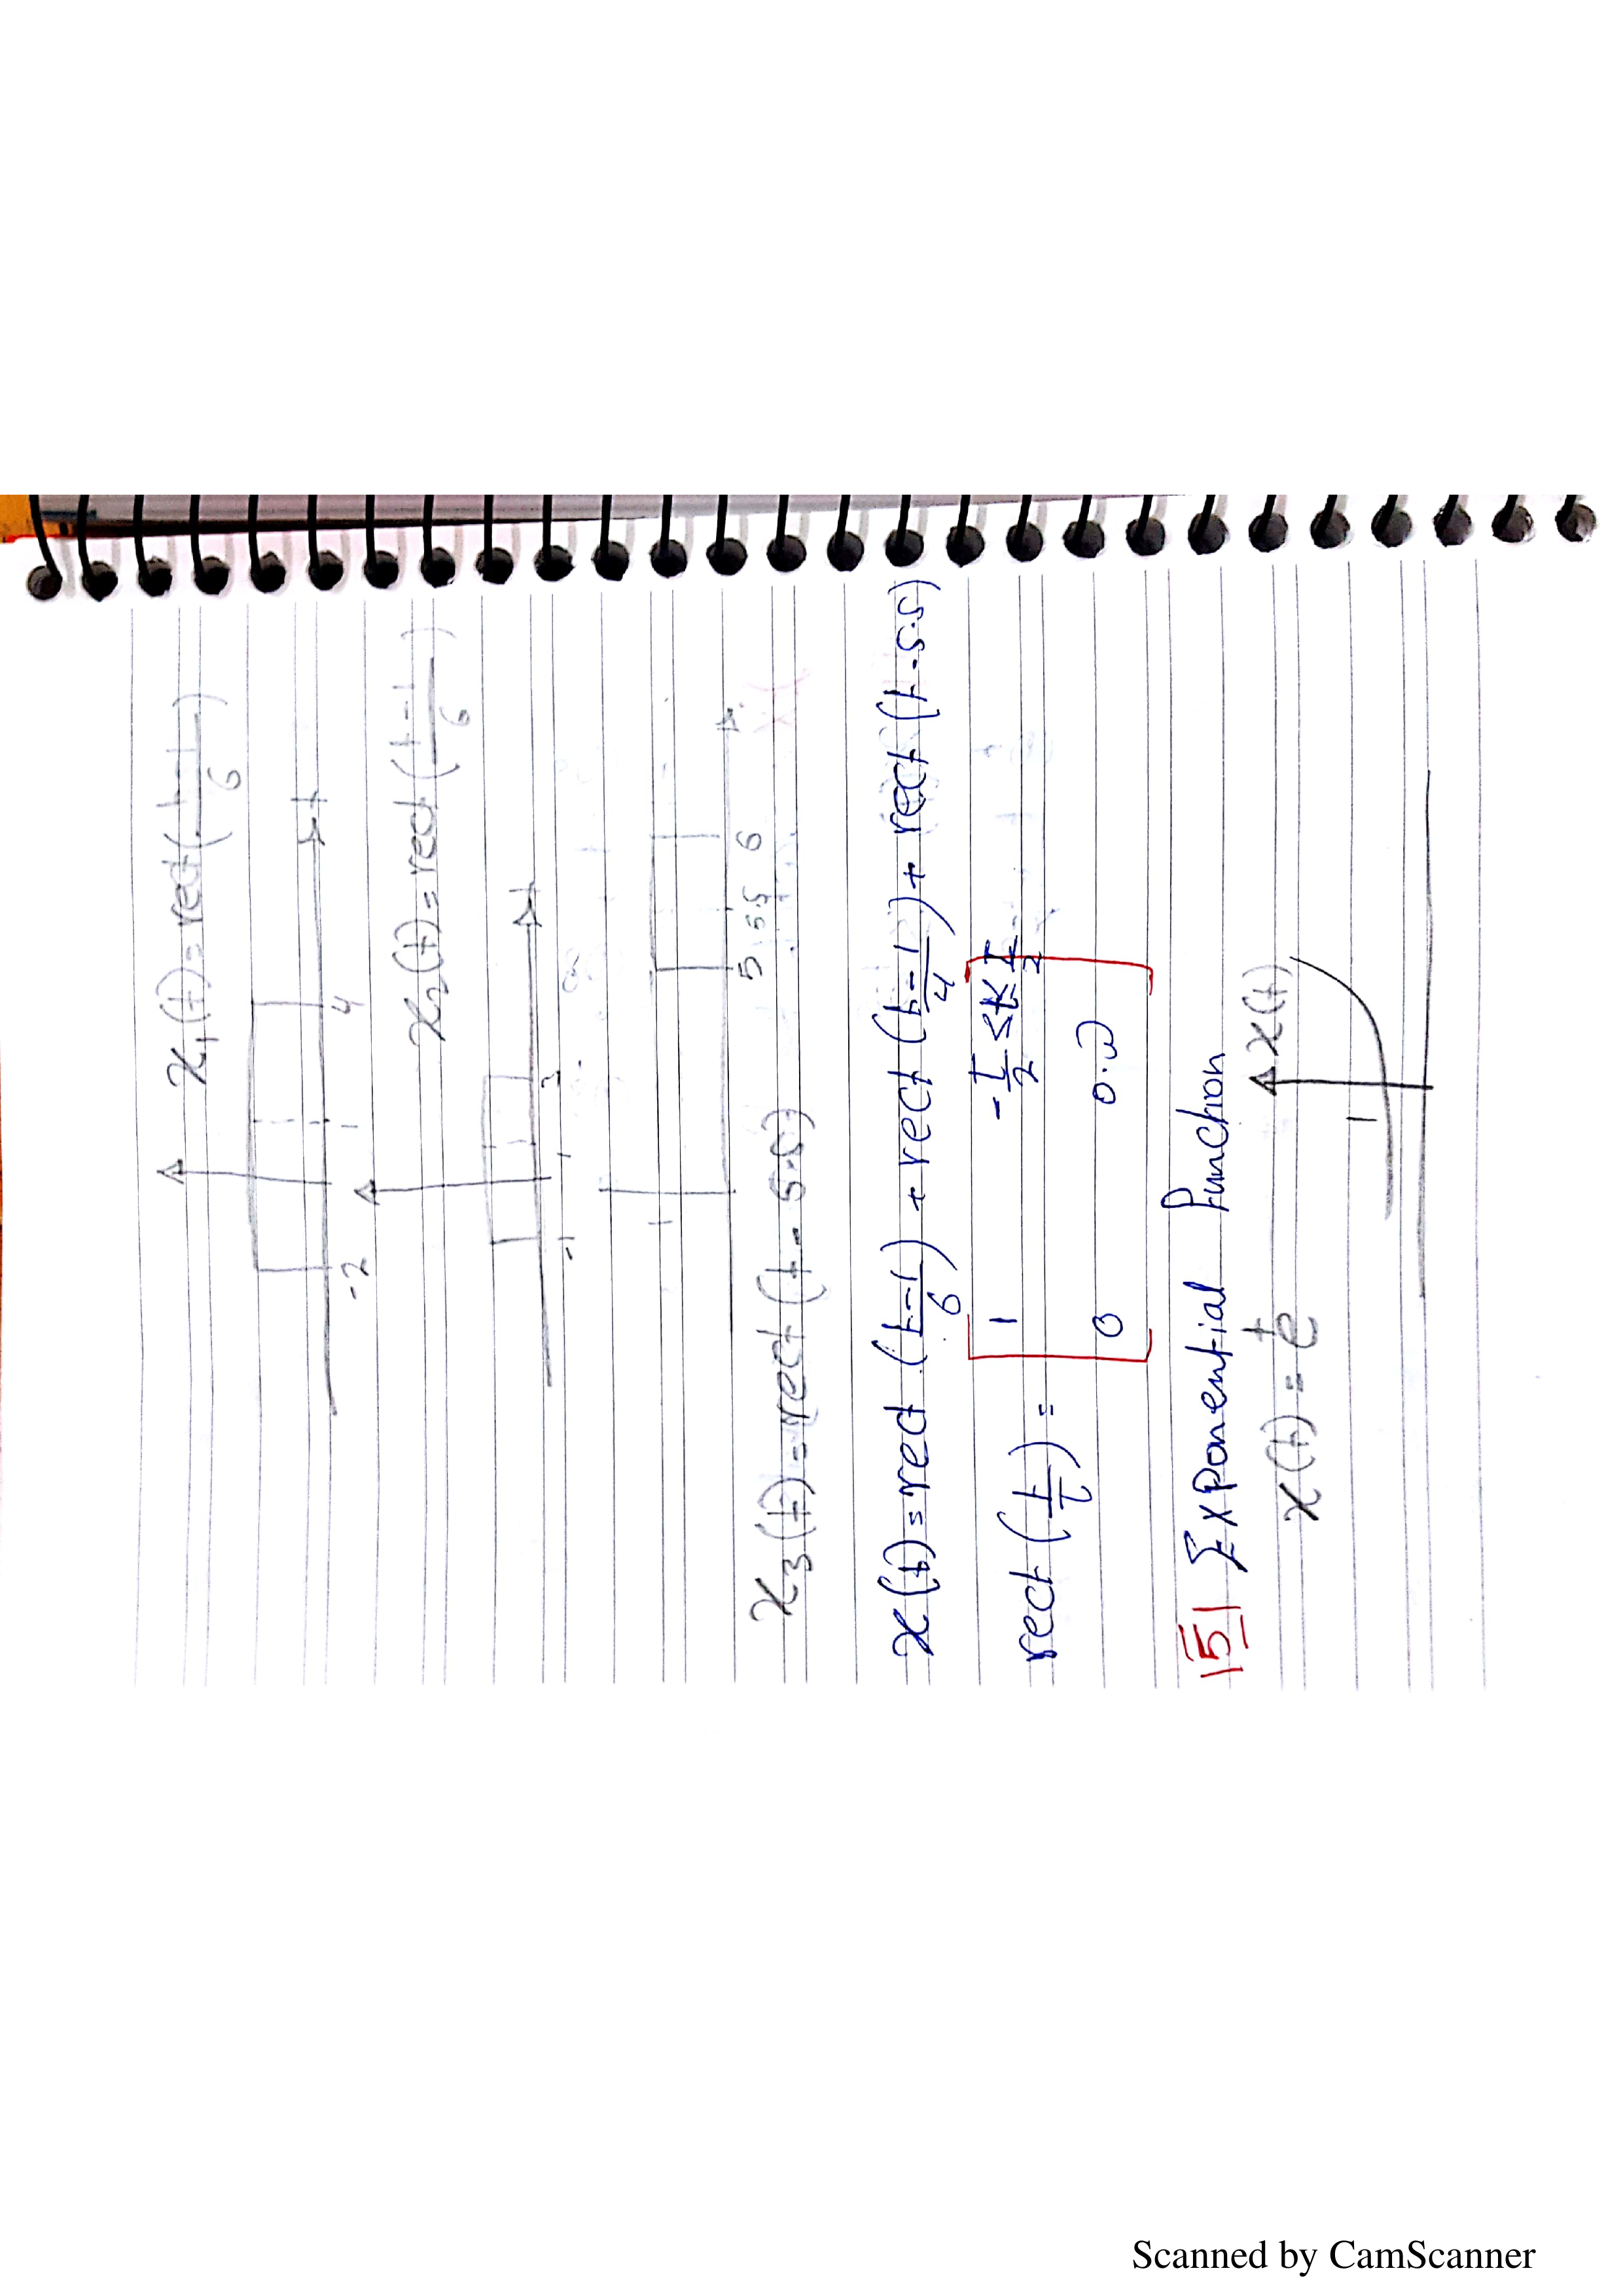 x₁(t) = rect(t-1/6)
t
-2 1 4
x₂(t) = rect(t-1/6)
t
-1 1 3
1
5 5.5 6
x₃(t) = rect(t-5.5)
x(t) = rect(t-1/6) + rect(t-1/4) + rect(t-5.5)
rect(t/τ) = 1 -τ/2 ≤ t < τ/2
0 o.w
5 Exponential Function
x(t) = eᵗ x(t)
1
Scanned by CamScanner